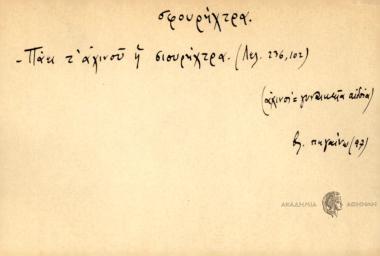 σφουρήχτρα.
- Πάει τ' ἀχινοῦ ἡ σιουρήχτρα. (Λελ. 236, 102)
(ἀχινοί = γυναικεῖα αἰδοῖα)
βλ. πηγαίνω (97)
ΑΚΑΔΗΜΙΑ ΑΘΗΝΩΝ